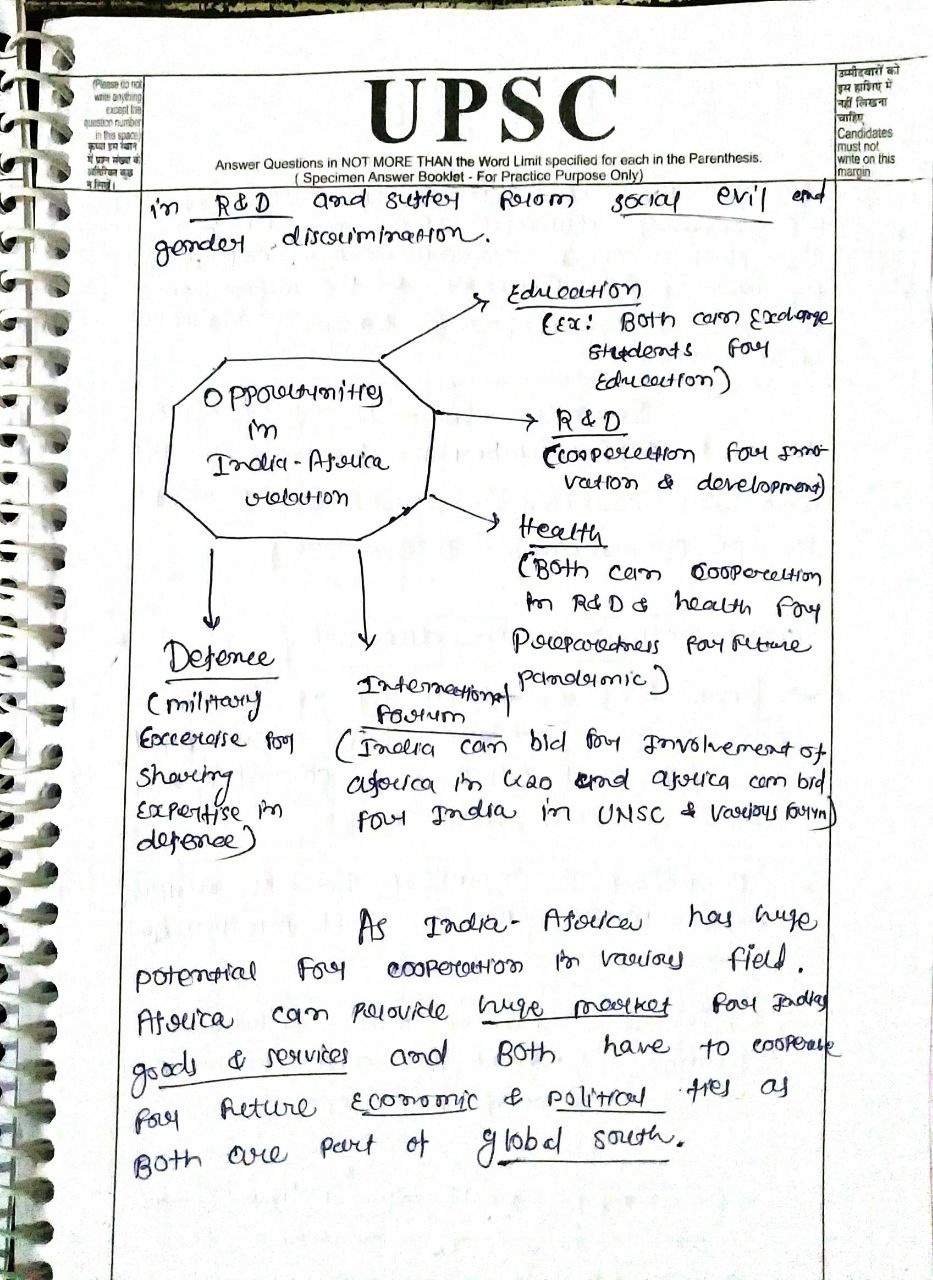 (Please do not
write anything
except the
question number
in this space)
कृपया इस स्थान
में प्रश्न संख्या के
अतिरिक्त कुछ
न लिखें।
UPSC
Answer Questions in NOT MORE THAN the Word Limit specified for each in the Parenthesis.
( Specimen Answer Booklet - For Practice Purpose Only)
उम्मीदवारों को
इस हाशिए में
नहीं लिखना
चाहिए
Candidates
must not
write on this
margin
in R&D and suffer from social evil and
gender discrimination.
Opportunities
in
India-Africa
relation
Education
(Ex: Both can Exchange
students for
Education)
R&D
(cooperation for inno-
vation & development)
Health
(Both can cooperation
in R&D & health for
Preparedness for future
pandemic)
Defence
(military
Excerise for
sharing
Expertise in
defence)
International
forum
(India can bid for Involvement of
africa in G20 and africa can bid
for India in UNSC & various forum)
As India-Africa has huge
potential for cooperation in various field.
Africa can provide huge market for India
goods & services and Both have to cooperate
for future Economic & political ties as
Both are part of global south.